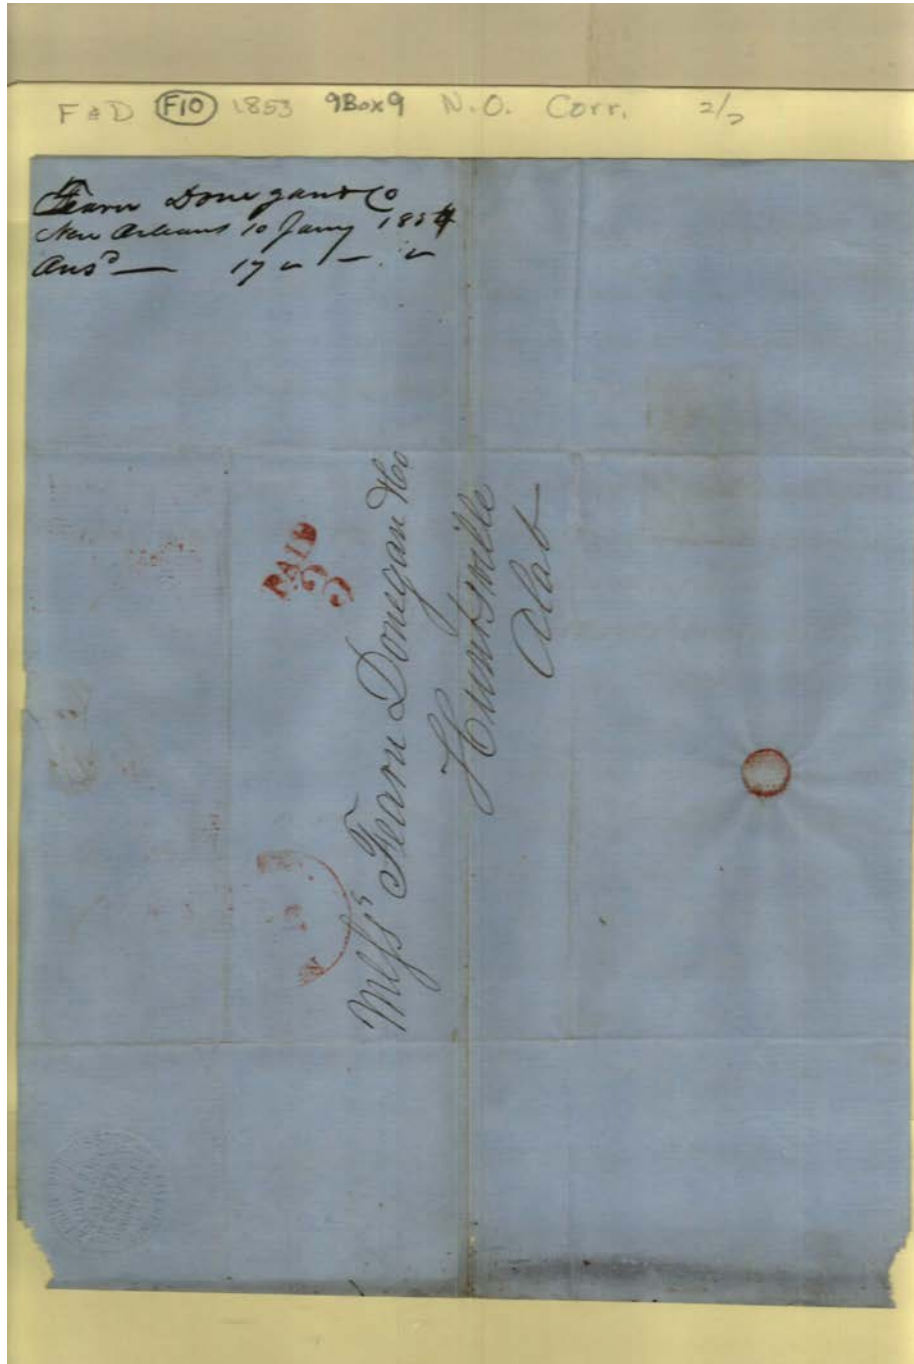 F & D F10 1853 9Box9 N.O. Corr. 2/2
Fearn Donegan & Co
New Orleans 10 Jany 1854
Ansd — 17 " — "
PAID
3
Messrs Fearn Donegan & Co
Huntsville
Alab